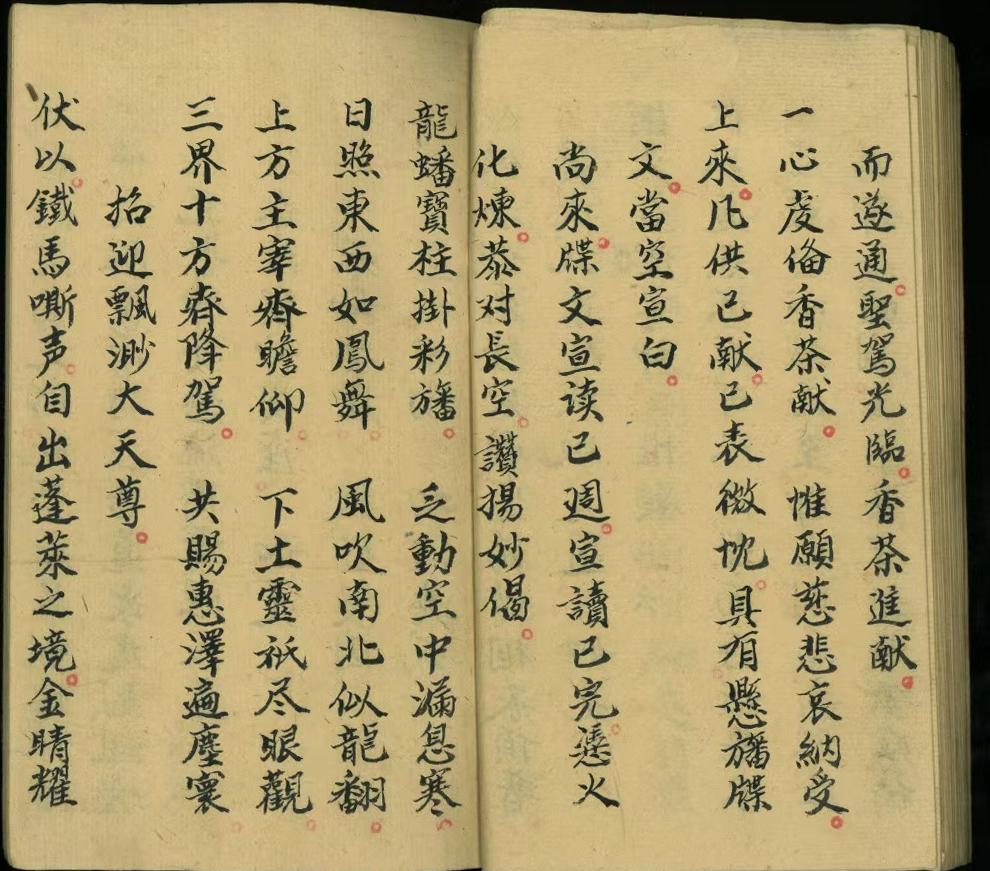 而遂通聖駕光臨香茶進献
一心虔俻香茶献惟願慈悲哀納受
上來凡供已献已表微忱具有懸旛牒
文當空宣白
尚來牒文宣读已週宣讀已完憑火
化煉恭对長空讚揚妙偈
龍蟠寳柱掛彩旛 乏動空中漏息寒
日照東西如鳳舞 風吹南北似龍翻
上方主宰齊瞻仰 下土靈祇尽眼觀
三界十方齊降駕 共賜惠澤遍塵寰
招迎飄渺大天尊
伏以鐵馬嘶声自出蓬萊之境金睛耀